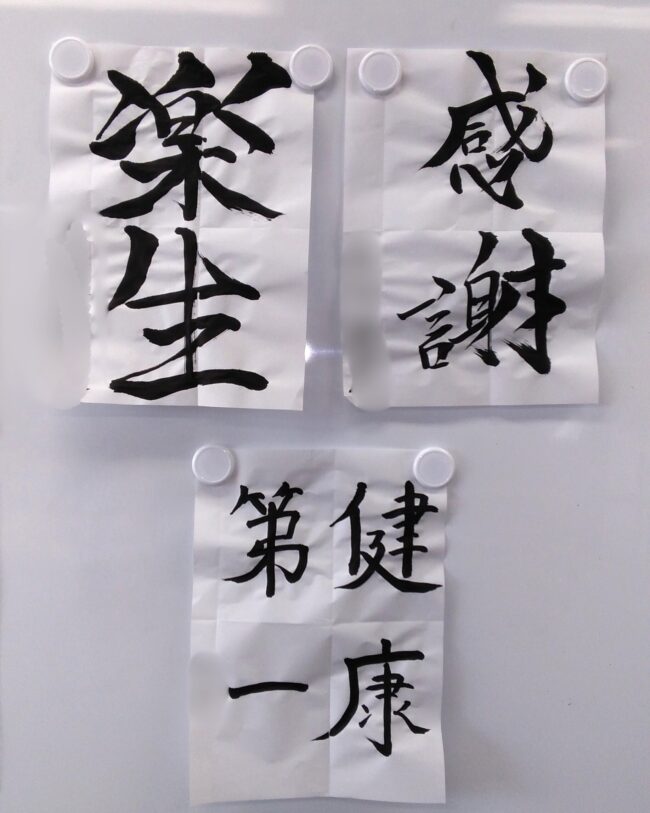 感謝
楽生
健康
第一